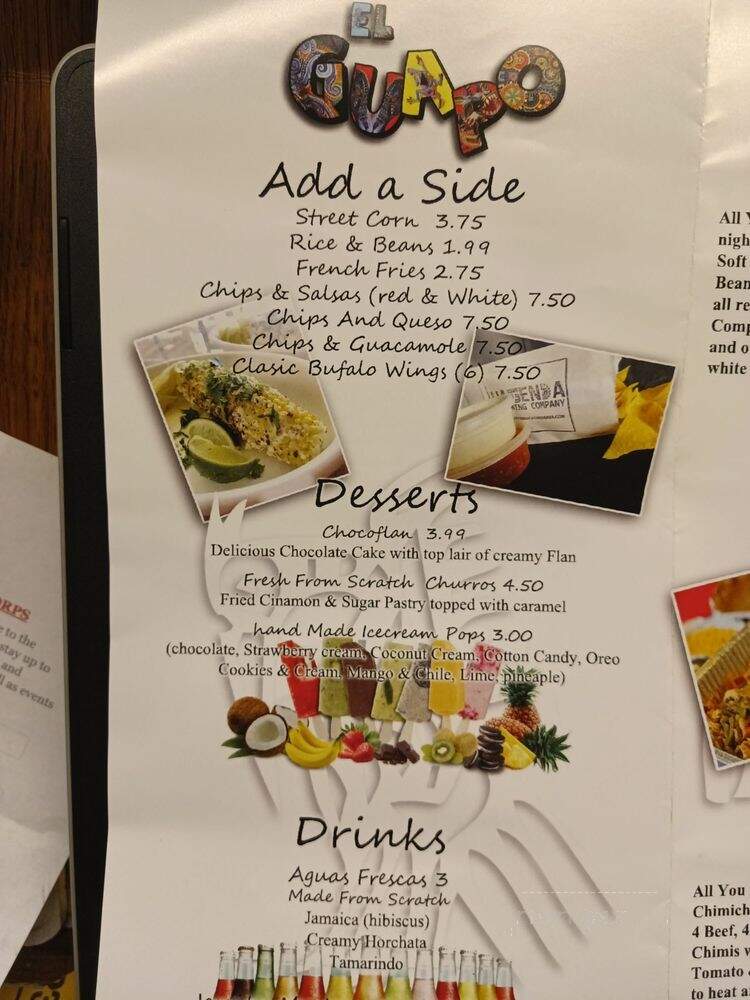 EL
GUAPO
Add a Side
Street Corn 3.75
Rice & Beans 1.99
French Fries 2.75
Chips & Salsas (red & White) 7.50
Chips And Queso 7.50
Chips & Guacamole 7.50
Clasic Bufalo Wings (6) 7.50
ENDA
ING COMPANY
Desserts
Chocoflan 3.99
Delicious Chocolate Cake with top lair of creamy Flan
Fresh From Scratch Churros 4.50
Fried Cinamon & Sugar Pastry topped with caramel
hand Made Icecream Pops 3.00
(chocolate, Strawberry cream, Coconut Cream, Cotton Candy, Oreo
Cookies & Cream, Mango & Chile, Lime, pineaple)
Drinks
Aguas Frescas 3
Made From Scratch
Jamaica (hibiscus)
Creamy Horchata
Tamarindo
All
nigh
Soft
Bean
all re
Comp
and o
white
All You
Chimich
4 Beef, 4
Chimis w
Tomato
to heat a
ORPS
e to the
stay up to
and
ll as events